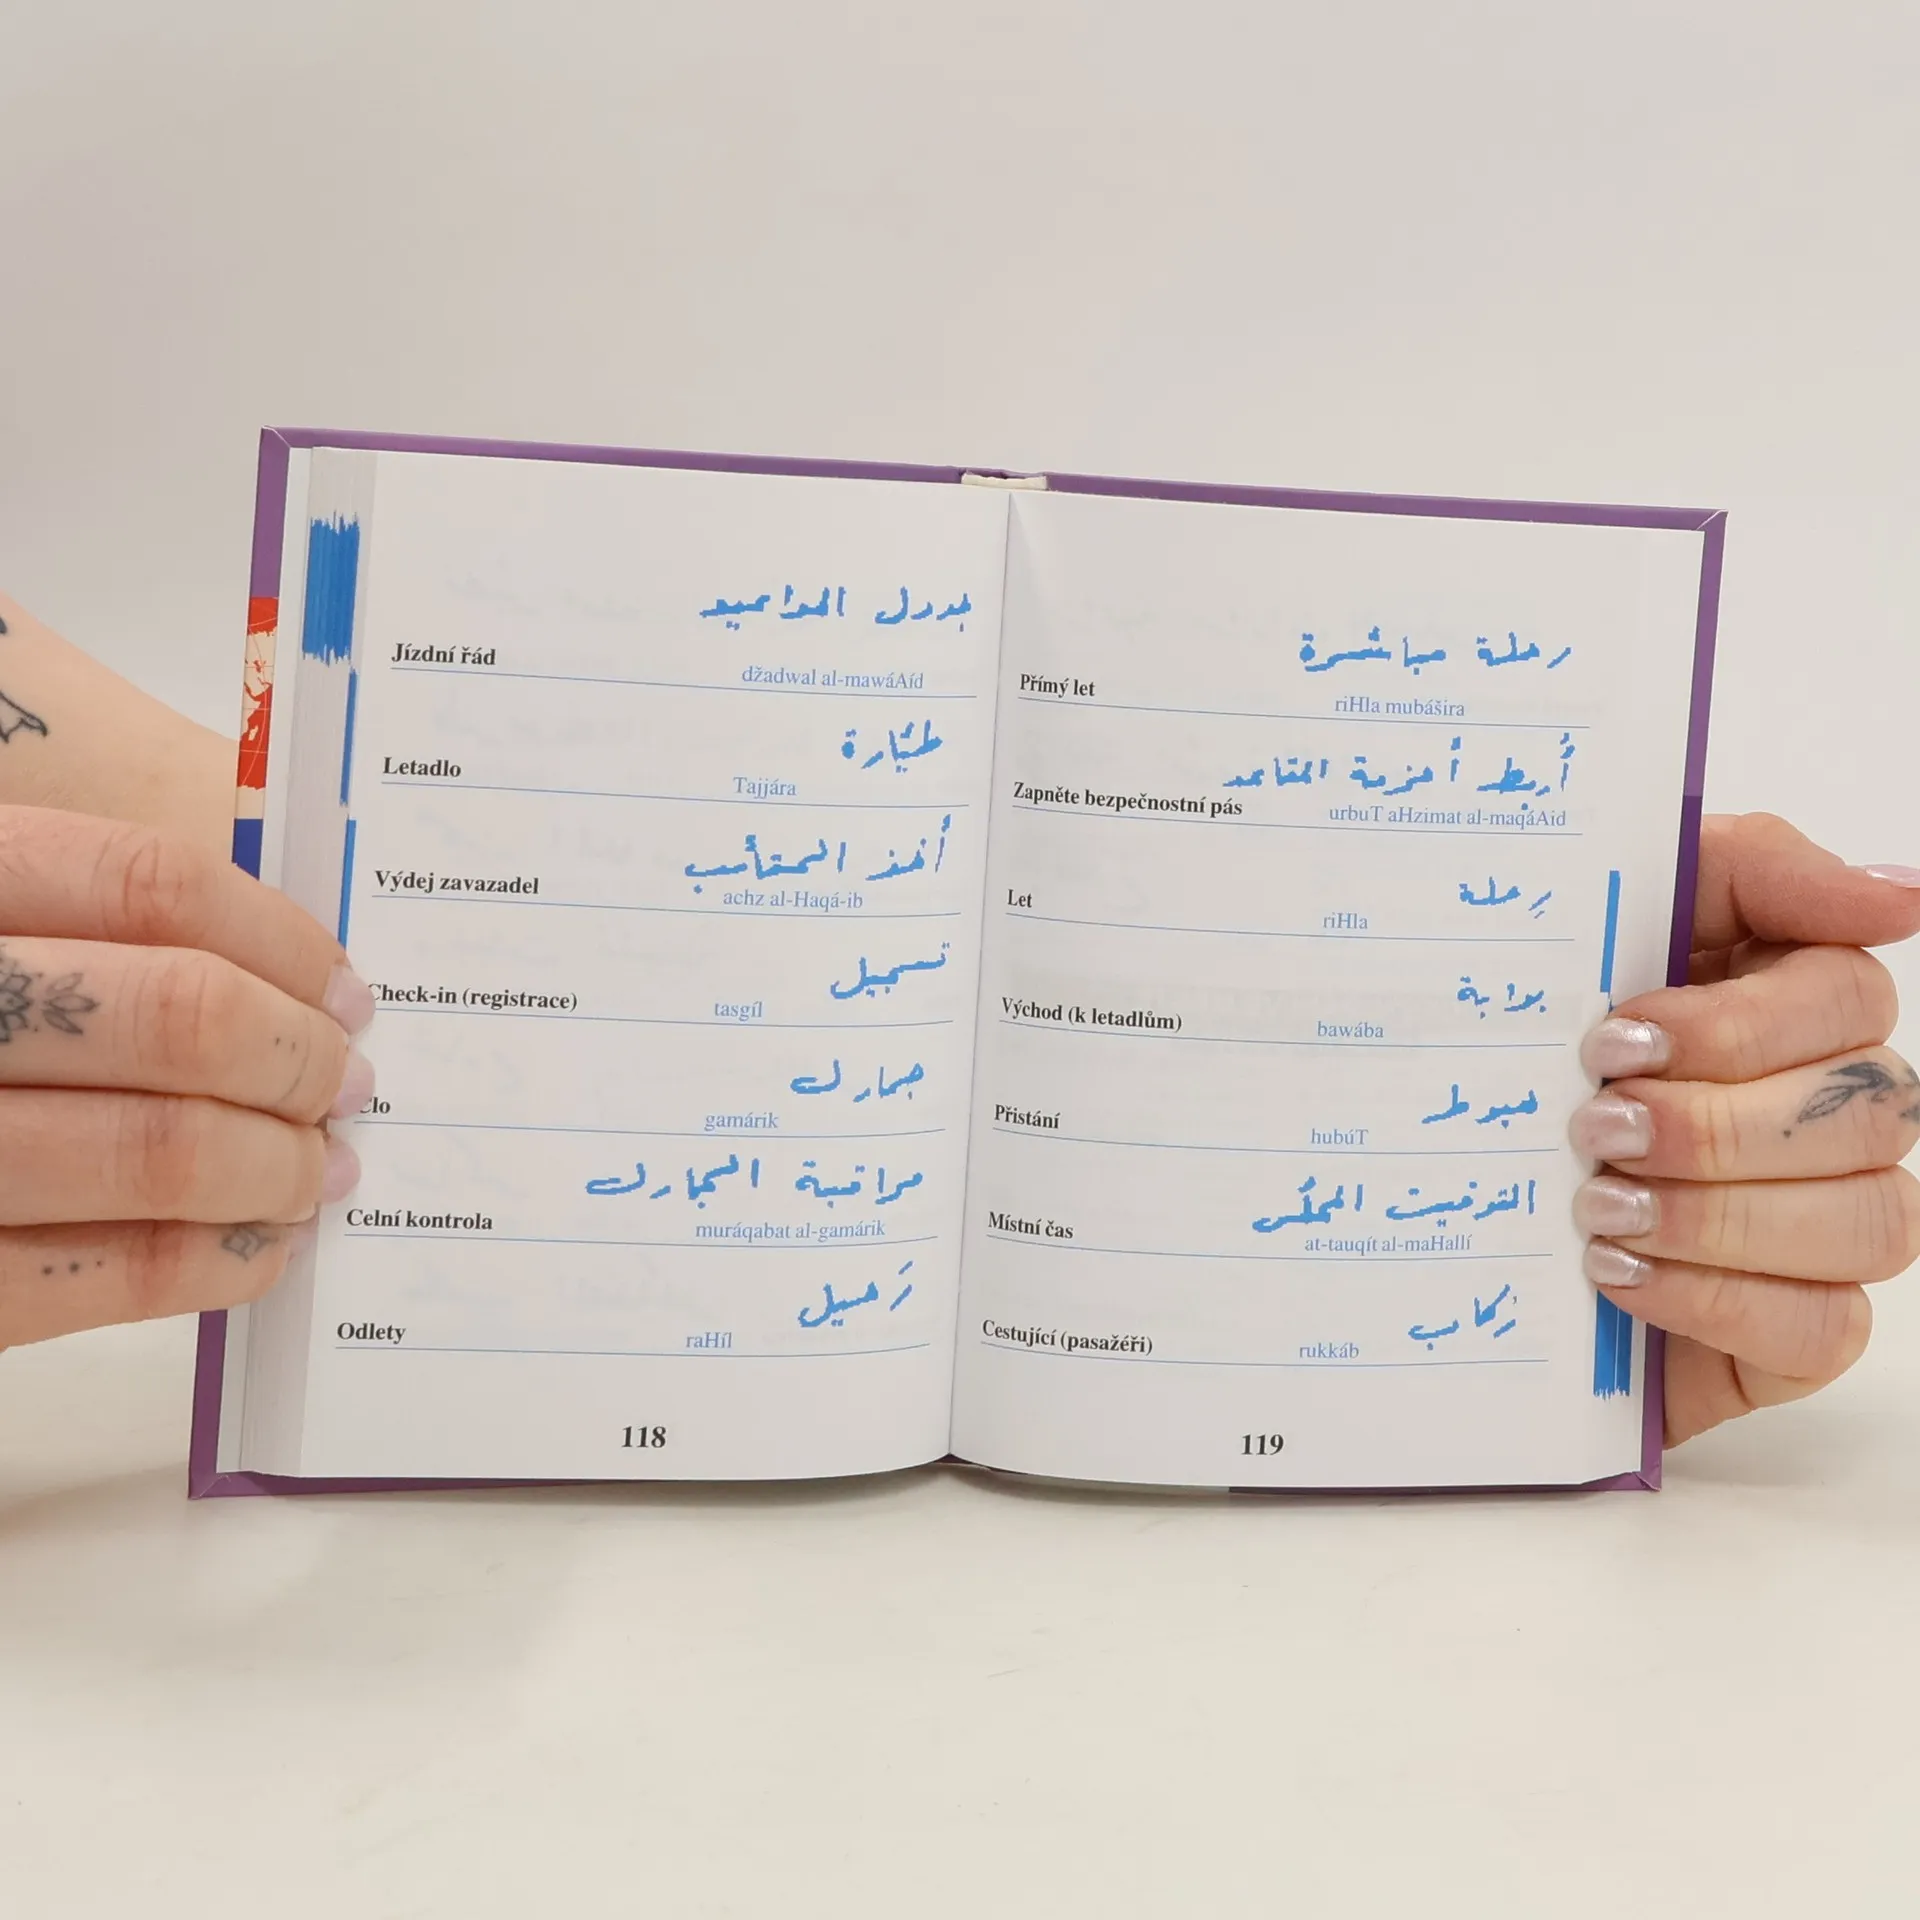 جدول المواعيد
Jízdní řád
džadwal al-mawáAíd
طيّارة
Letadlo
Tajjára
أخذ الحقائب
Výdej zavazadel
achz al-Haqá-ib
تسجيل
Check-in (registrace)
tasgíl
جمارك
Clo
gamárik
مراقبة الجمارك
Celní kontrola
muráqabat al-gamárik
رَحيل
Odlety
raHíl
118
رحلة مباشرة
Přímý let
riHla mubášira
أُربط أحزمة المقاعد
Zapněte bezpečnostní pás
urbuT aHzimat al-maqáAid
رِحلة
Let
riHla
بوابة
Východ (k letadlům)
bawába
هبوط
Přistání
hubúT
التوقيت المحلّي
Místní čas
at-tauqít al-maHallí
رُكاب
Cestující (pasažéři)
rukkáb
119